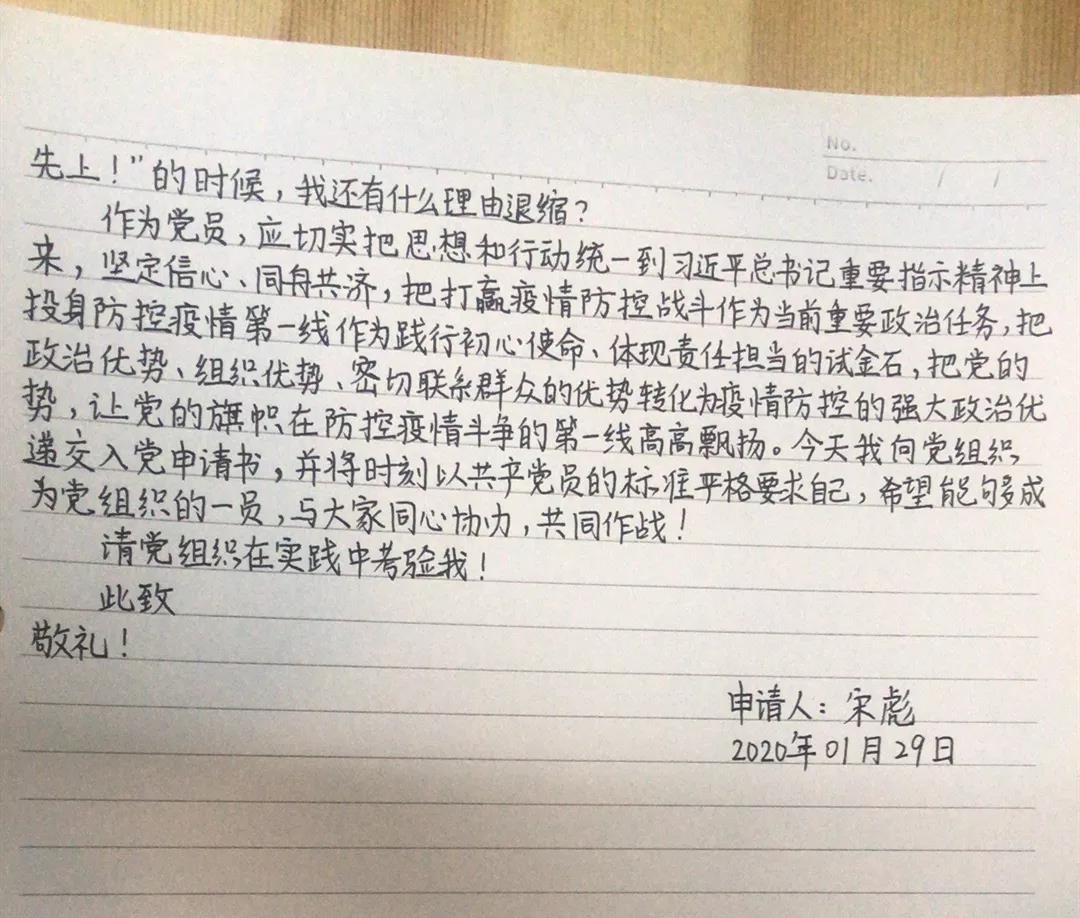 No.
Date. / /
先上！”的时候，我还有什么理由退缩？
作为党员，应切实把思想和行动统一到习近平总书记重要指示精神上
来，坚定信心、同舟共济，把打赢疫情防控战斗作为当前重要政治任务，把
投身防控疫情第一线作为践行初心使命、体现责任担当的试金石，把党的
政治优势、组织优势、密切联系群众的优势转化为疫情防控的强大政治优
势，让党的旗帜在防控疫情斗争的第一线高高飘扬。今天我向党组织
递交入党申请书，并将时刻以共产党员的标准严格要求自己，希望能够成
为党组织的一员，与大家同心协力，共同作战！
请党组织在实践中考验我！
此致
敬礼！
申请人：宋彪
2020年01月29日